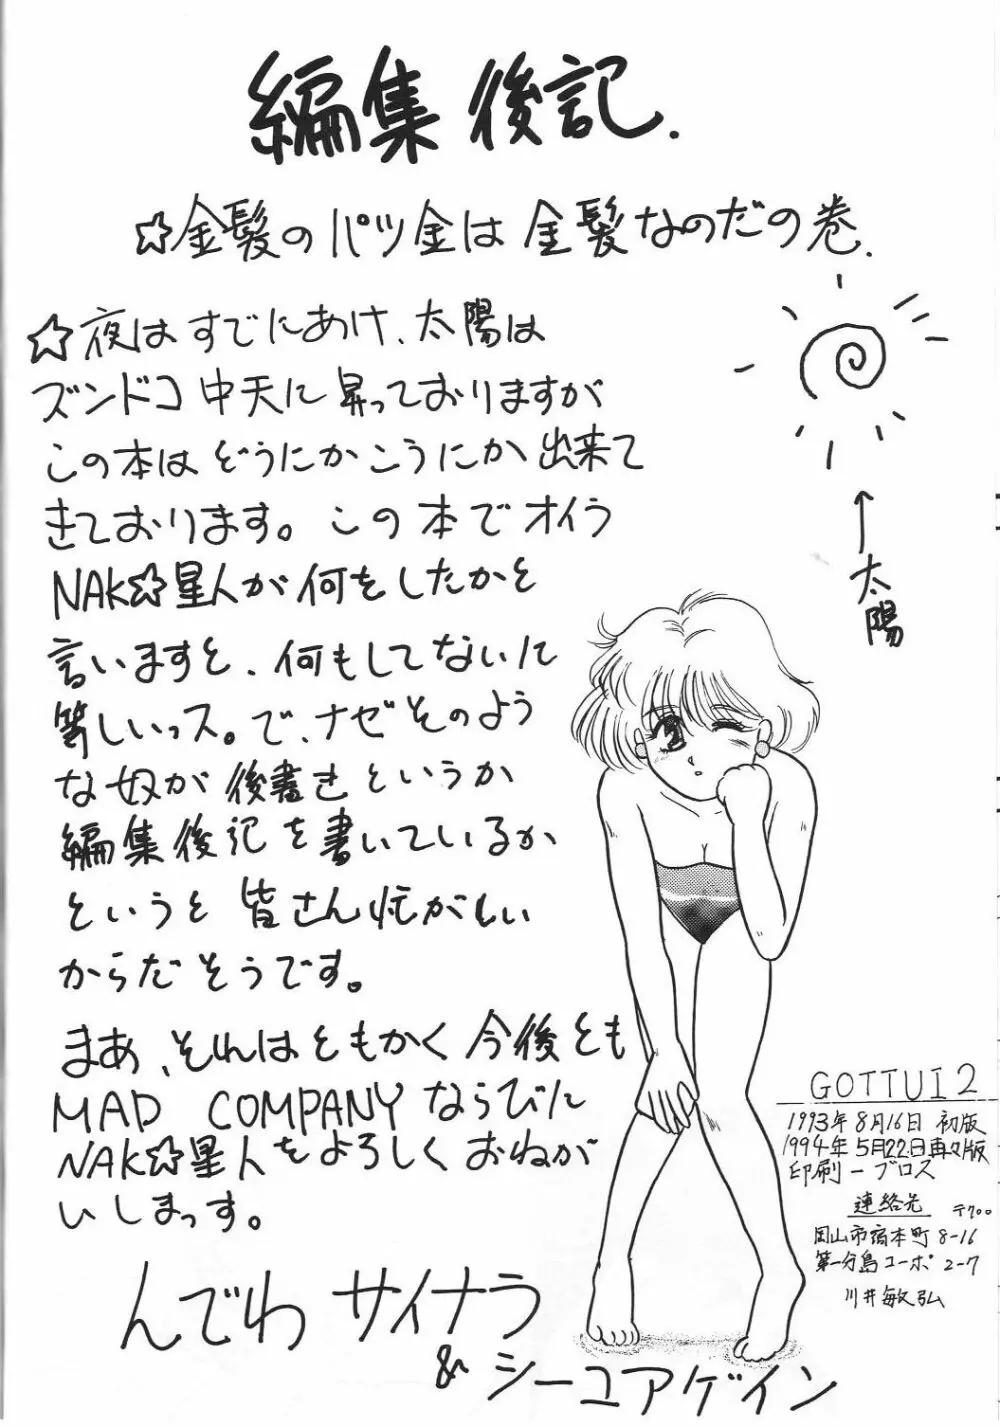 編集後記.
☆金髪のパツ金は金髪なのだの巻.
☆夜はすでにあけ、太陽は
ズンドコ中天に昇っておりますが
この本はどうにかこうにか出来て
きております。この本でオイラ
NAK☆星人が何をしたかと
言いますと、何もしてないに
等しいっス。で、ナゼそのよう
な奴が後書きというか
編集後記を書いているか
というと皆さん忙がしい
からだそうです。
まあ、それはともかく今後とも
MAD COMPANYならびに
NAK☆星人をよろしくおねが
いしまっす。
んでわ サイナラ
& シーユアゲイン
↑太陽
GOTTUI2
1993年8月16日 初版
1994年5月22日再々版
印刷ーブロス
連絡先 〒700
岡山市宿本町8-16
第一分島コーポ2-7
川井敏弘